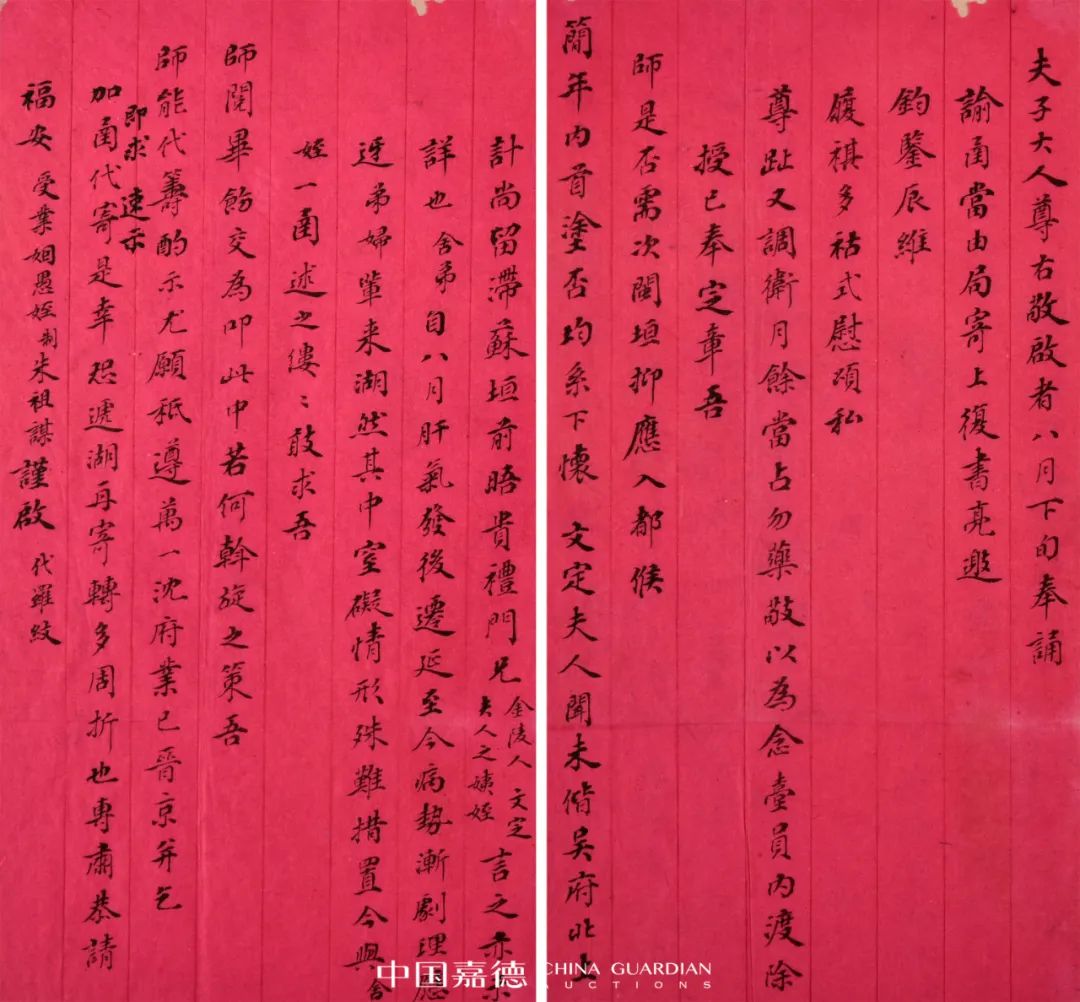 夫子大人尊右敬啟者八月下旬奉誦
諭函當由局寄上復書亮邀
鈞鑒辰維
履祺多祜式慰頌私
尊趾又調衛月餘當占勿藥敬以為念臺員內渡除
授已奉定章吾
師是否需次閩垣抑應入都候
簡年內首塗否均系下懷 文定夫人聞未偕吳府北上
計尚留滯蘇垣前晤貴禮門兄金陵人文定夫人之姨姪言之亦未
詳也舍弟自八月肝氣發後遷延至今病勢漸劇理應
迓弟婦輩來湖然其中窒礙情形殊難措置今與舍
姪一函述之縷〻敢求吾
師閱畢飭交為叩此中若何斡旋之策吾
師能代籌酌示尤願秪遵萬一沈府業已晉京并乞
即求速示
加函代寄是幸恐遞湖再寄轉多周折也專肅恭請
福安 受業姻愚姪制朱祖謀謹啟 代羅紋
中国嘉德 CHINA GUARDIAN
AUCTIONS